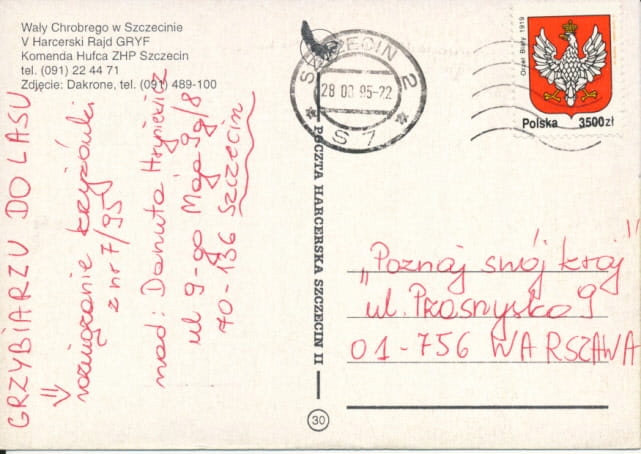 Wały Chrobrego w Szczecinie
V Harcerski Rajd GRYF
Komenda Hufca ZHP Szczecin
tel. (091) 22 44 71
Zdjęcie: Dakrone, tel. (091) 489-100
GRZYBIARZU DO LASU
rozwiązanie krzyżówki
z nr 7/95
nad: Danuta
ul 9-go Maja 9g/8
70-136 Szczecin
POCZTA HARCERSKA SZCZECIN II
30
SZCZECIN 2
95-22
S7
Orzeł Biały 1919
Polska 3500zł
„Poznaj swój kraj"
ul. Prosnysko 9
01-756 WARSZAWA